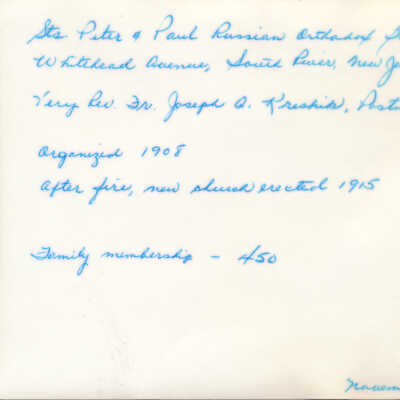 Sts. Peter & Paul Russian Orthodox
Whitehead Avenue, South River, New
Very Rev. Fr. Joseph A. Kreshik,
Organized 1908
After fire, new church erected 1915
Family membership - 450